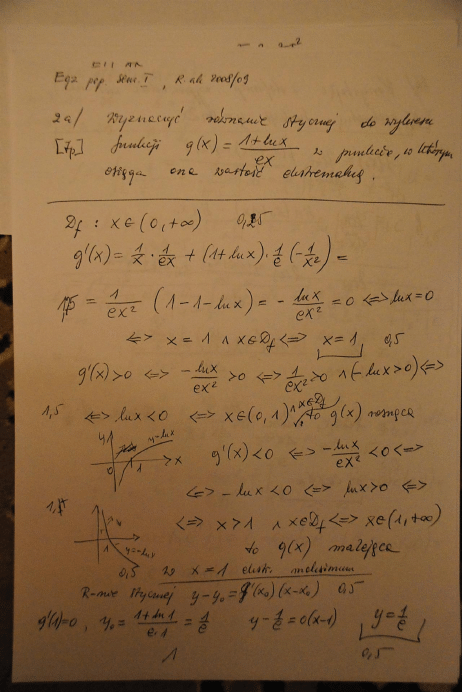 Egz pop. sem. I, R. ak 2008/09
2a/ Wyznaczyć równanie stycznej do wykresu
[7p] funkcji g(x) = \frac{1+lnx}{ex} w punkcie, w którym
osiąga ona wartość ekstremalną.
D_f : x∈(0,+∞) 0,5
g'(x) = \frac{1}{x} · \frac{1}{ex} + (1+lnx) · \frac{1}{e} (-\frac{1}{x²}) =
= \frac{1}{ex²} (1-1-lnx) = - \frac{lnx}{ex²} = 0 ⇔ lnx = 0
⇔ x = 1 ∧ x∈D_f ⇔ x = 1 0,5
g'(x) > 0 ⇔ -\frac{lnx}{ex²} > 0 ⇔ \frac{1}{ex²} > 0 ∧ (-lnx > 0) ⇔
1,5 ⇔ lnx < 0 ⇔ x∈(0,1) ∧ x∈D_f to g(x) rosnąca
y y=lnx 0 1 x
g'(x) < 0 ⇔ -\frac{lnx}{ex²} < 0 ⇔
⇔ -lnx < 0 ⇔ lnx > 0 ⇔
⇔ x > 1 ∧ x∈D_f ⇔ x∈(1,+∞)
1 y=-lnx
to g(x) malejąca
0,5 w x = 1 ekstr. maksimum
R-nie stycznej y-y₀ = g'(x₀)(x-x₀) 0,5
g'(1)=0, y₀ = \frac{1+ln1}{e·1} = \frac{1}{e} y-\frac{1}{e} = 0(x-1) y = \frac{1}{e}
1 0,5